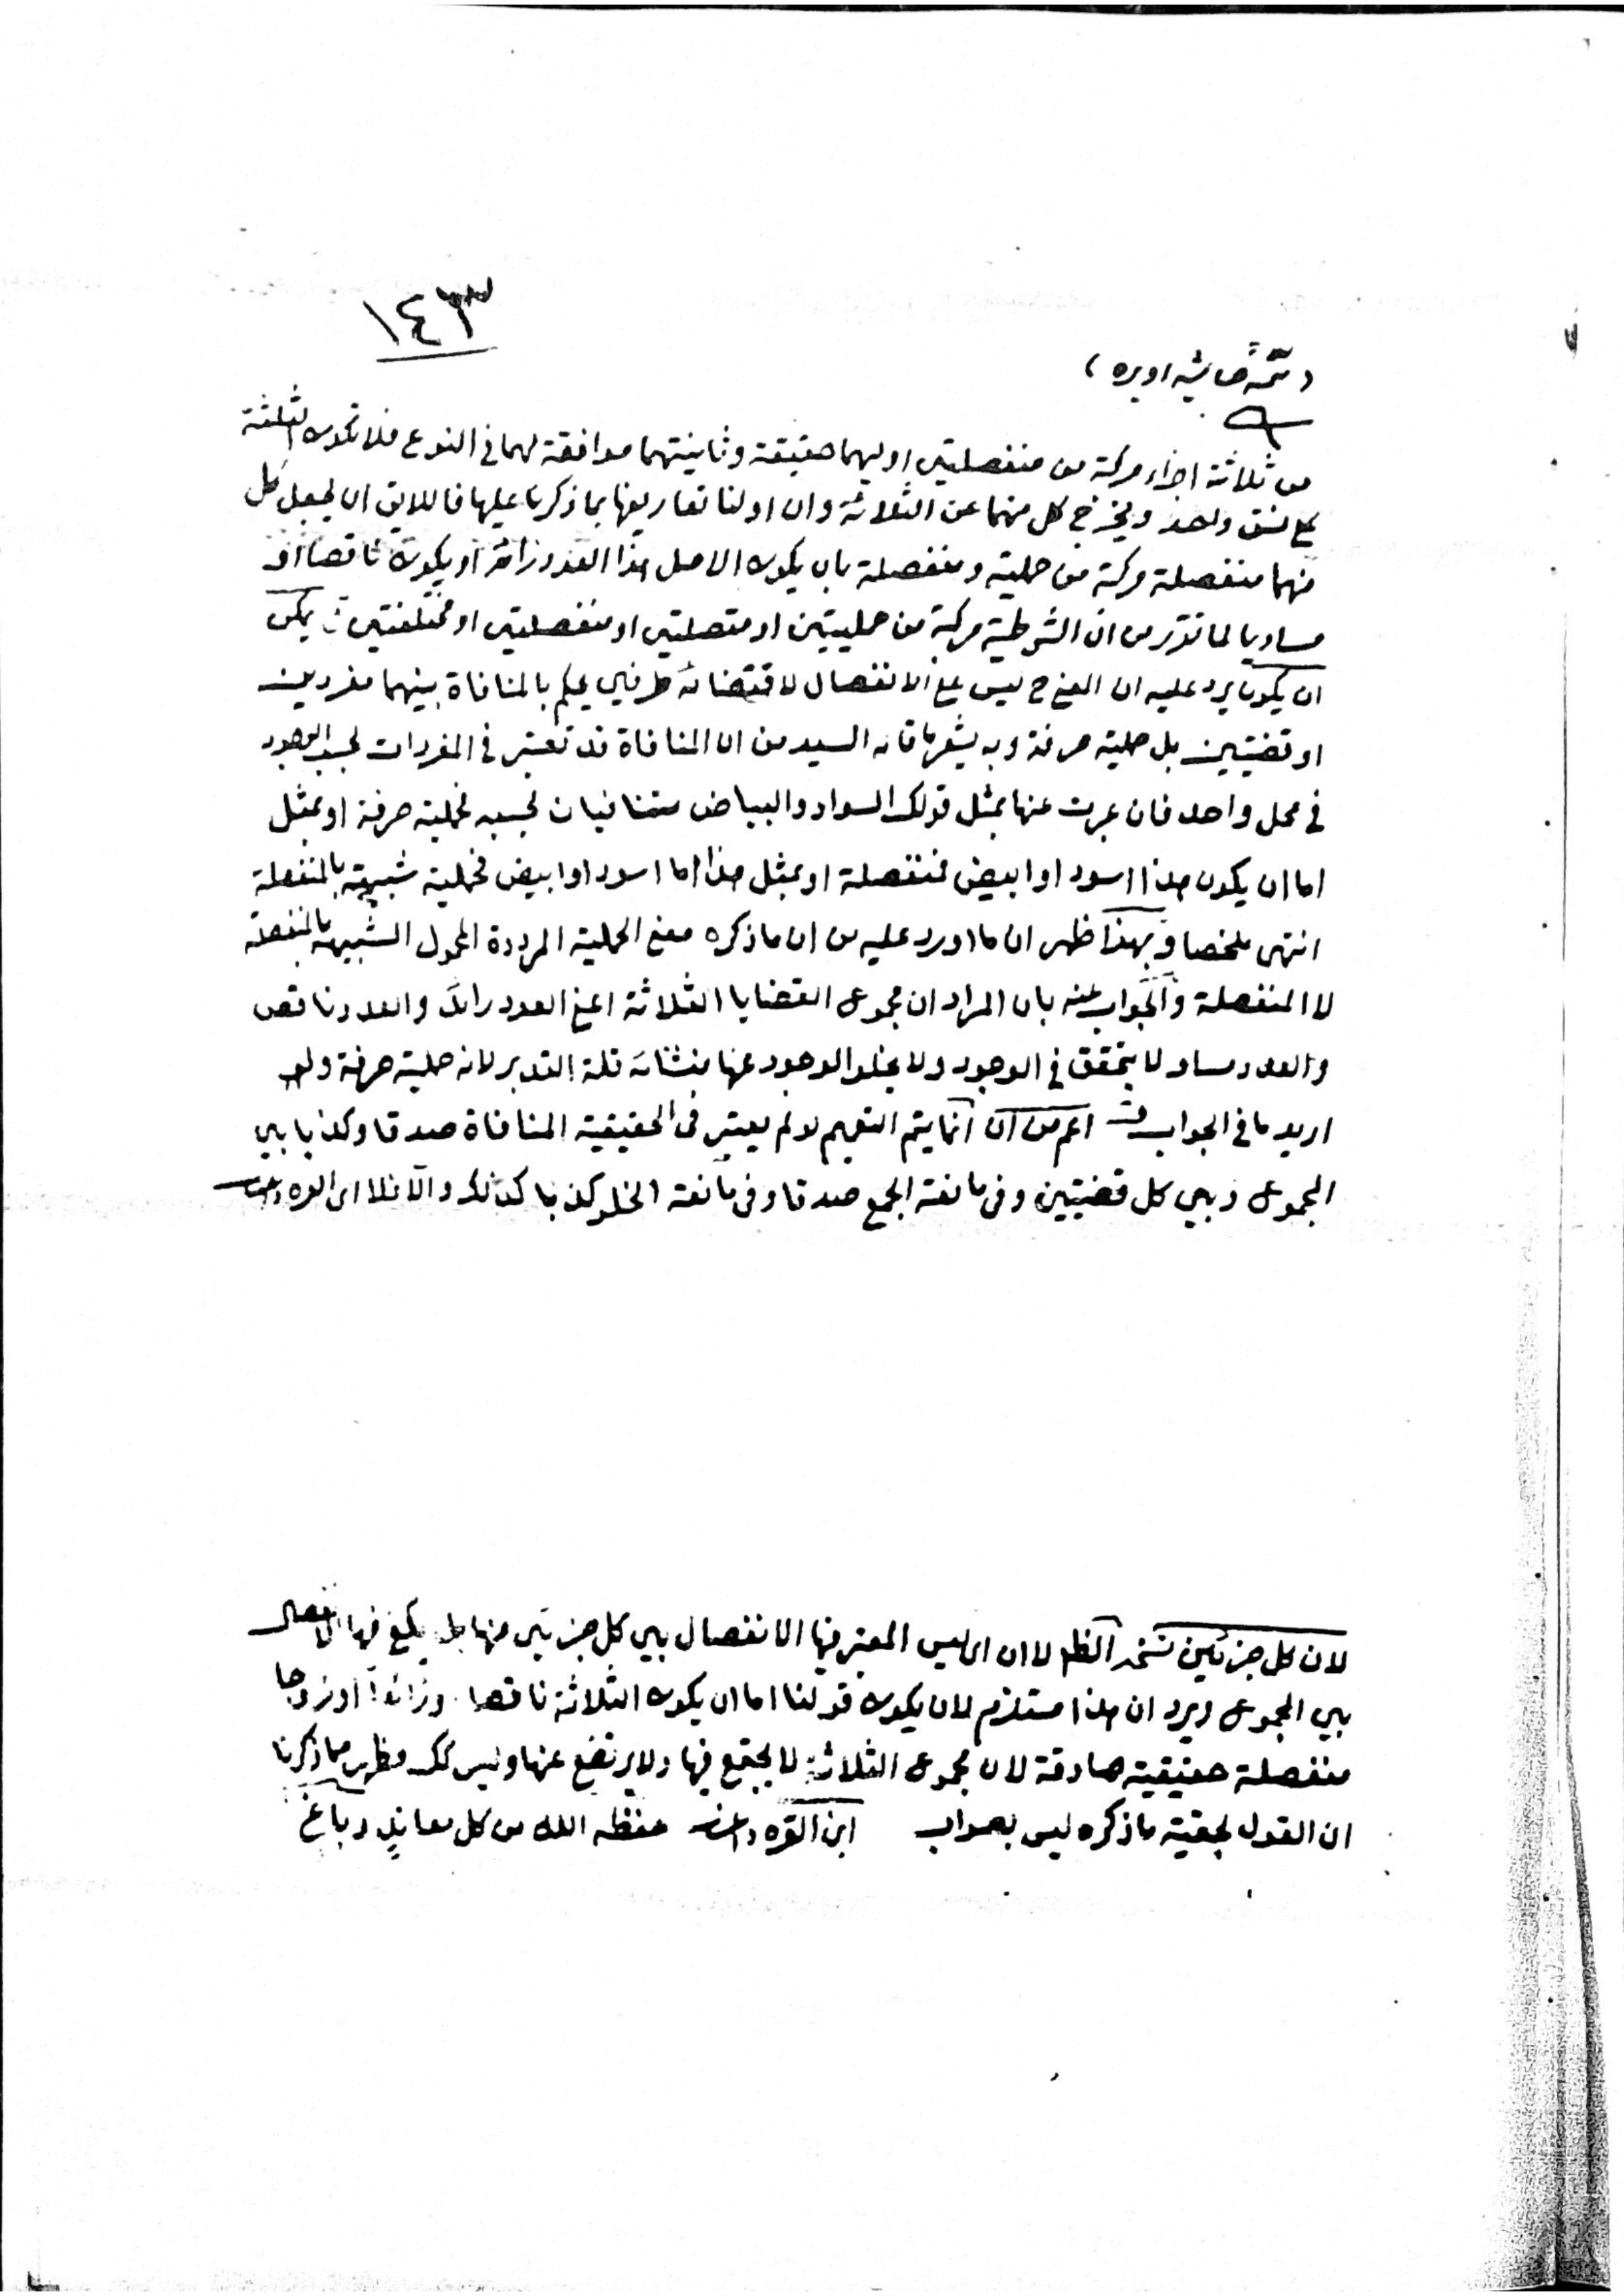 ١٤٣
( تتمة حاشية اويره )
من ثلاثة اجزاء مركبة من منفصلتين اوليهما حقيقية وثانيتهما موافقة لهما في النوع فلا تكون الثلثة
على نسق واحد ويخرج كل منهما عن الثلاثة وان اولنا تعاريفها بما ذكرنا عليها فاللايق ان يجعل كل
منهما منفصلة مركبة من حملية ومنفصلة بان يكون الاصل هذا العدد زائد او يكون ناقصا او
مساويا لما تقرر من ان الشرطية مركبة من حمليتين او متصلتين او منفصلتين او مختلفتين يمكن
ان يكون يرد عليه ان المعنى ح ليس على الانفصال لاقتضائه طرفين يحكم بالمنافاة بينهما مفردين
او قضيتين بل حملية صرفة وبه يشعر ما قاله السيد من ان المنافاة قد تعتبر في المفردات بحسب الوجود
في محل واحد فان عبرت عنها بمثل قولك السواد والبياض متنافيان بحسبه فحملية صرفة او بمثل
اما ان يكون هذا اسود او ابيض فمنفصلة او بمثل هذا اما اسود او ابيض فحملية شبيهة بالمنفصلة
انتهى ملخصا وبهذا ظهر ان ما اورد عليه من ان ما ذكره معنى الحملية المرددة المحمول الشبيهة بالمنفصلة
لا المنفصلة والجواب عنه بان المراد ان مجموع القضايا الثلاثة اعني العدد زائد والعدد ناقص
والعدد مساو لا يتحقق في الوجود ولا يخلو الوجود عنها منشائه قلة التدبر لانه حملية صرفة ولو
اريد ما في الجواب اعم من ان انما يتم التعميم لو لم يعتبر في الحقيقية المنافاة صدقا وكذبا بين
المجموع وبين كل قضيتين وفي مانعة الجمع صدقا وفي مانعة الخلو كذبا كذلك والا فلا ابن القره داغى
لان كل جزئين نسخة الظ لا ان اى ليس المعتبر فيها الانفصال بين كل جزئين منها بل يكفي فيها الانفصال
بين المجموع ويرد ان هذا مستلزم لان يكون قولنا اما ان يكون الثلاثة ناقصا وزائدا او زوجا
منفصلة حقيقية صادقة لان مجموع الثلاثة لا يجتمع فيها ولا يرتفع عنها وليس كك فظهر مما ذكرنا
ان القول بحقية ما ذكره ليس بصواب ابن القره داغى حفظه الله من كل معاند وباغ